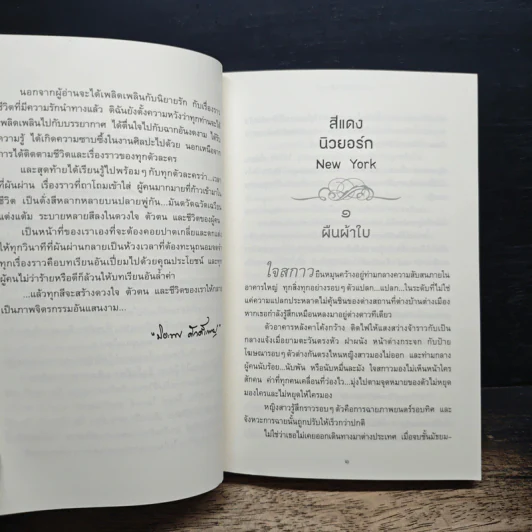 นอกจากผู้อ่านจะได้เพลิดเพลินกับนิยายรัก กับเรื่องราว
ชีวิตที่มีความรักนำทางแล้ว ดิฉันยังตั้งความหวังว่าทุกท่านจะได้
เพลิดเพลินไปกับบรรยากาศ ได้ตื่นใจไปกับฉากอันงดงาม ได้รับ
ความรู้ ได้เกิดความซาบซึ้งในงานศิลปะไปด้วย นอกเหนือจาก
การได้ติดตามชีวิตและเรื่องราวของทุกตัวละคร
และสุดท้ายได้เรียนรู้ไปพร้อมๆ กับทุกตัวละครว่า...เวลา
ที่ผันผ่าน เรื่องราวที่ถาโถมเข้าใส่ ผู้คนมากมายที่ก้าวเข้ามาใน
ชีวิต เป็นดั่งสีหลากหลายบนปลายพู่กัน...มันตวัดฉวัดเฉวียน
แต่งแต้ม ระบายหลายสีลงในดวงใจ ตัวตน และชีวิตของผู้คน
เป็นหน้าที่ของเราเองที่จะต้องคอยปาดเกลี่ยและตกแต่ง
ให้ทุกวินาทีที่ผันผ่านกลายเป็นห้วงเวลาที่ต้องทะนุถนอมจดจำ
ทุกเรื่องราวคือบทเรียนอันเปี่ยมไปด้วยคุณประโยชน์ และทุก
ผู้คนไม่ว่าร้ายหรือดีก็ล้วนให้บทเรียนอันล้ำค่า
...แล้วทุกสีจะสร้างดวงใจ ตัวตน และชีวิตของเราให้กลาย
เป็นภาพจิตรกรรมอันแสนงาม...
สีแดง
นิวยอร์ก
New York
๑
ผืนผ้าใบ
ใจสกาวยืนหมุนคว้างอยู่ท่ามกลางความสับสนภายใน
อาคารใหญ่ ทุกสิ่งทุกอย่างรอบๆ ตัวแปลก...แปลก...ในระดับที่ไม่ใช่
แค่ความแปลกประหลาดไม่คุ้นชินของต่างสถานที่ต่างบ้านต่างเมือง
หากเธอกำลังรู้สึกเหมือนหลงมาอยู่ต่างดาวทีเดียว
ตัวอาคารหลังคาโค้งกว้าง ติดไฟให้แสงสว่างจ้าราวกับเป็น
กลางแจ้งเมื่อยามตะวันตรงหัว ฝาผนัง หน้าต่างกระจก กับป้าย
โฆษณารอบๆ ตัวต่างกันตรงไหนหญิงสาวมองไม่ออก และท่ามกลาง
ผู้คนนับร้อย...นับพัน หรือนับหมื่นละมัง ใจสกาวมองไม่เห็นหน้าใคร
สักคน ค่าที่ทุกคนเคลื่อนที่ว่องไว...มุ่งไปตามจุดหมายของตัวไม่หยุด
มองใครและไม่หยุดให้ใครมอง
หญิงสาวรู้สึกราวรอบๆ ตัวคือการฉายภาพยนตร์รอบทิศ และ
จังหวะการฉายนั้นถูกปรับให้เร็วกว่าปกติ
ไม่ใช่ว่าเธอไม่เคยออกเดินทางมาต่างประเทศ เมื่อจบชั้นมัธยม-